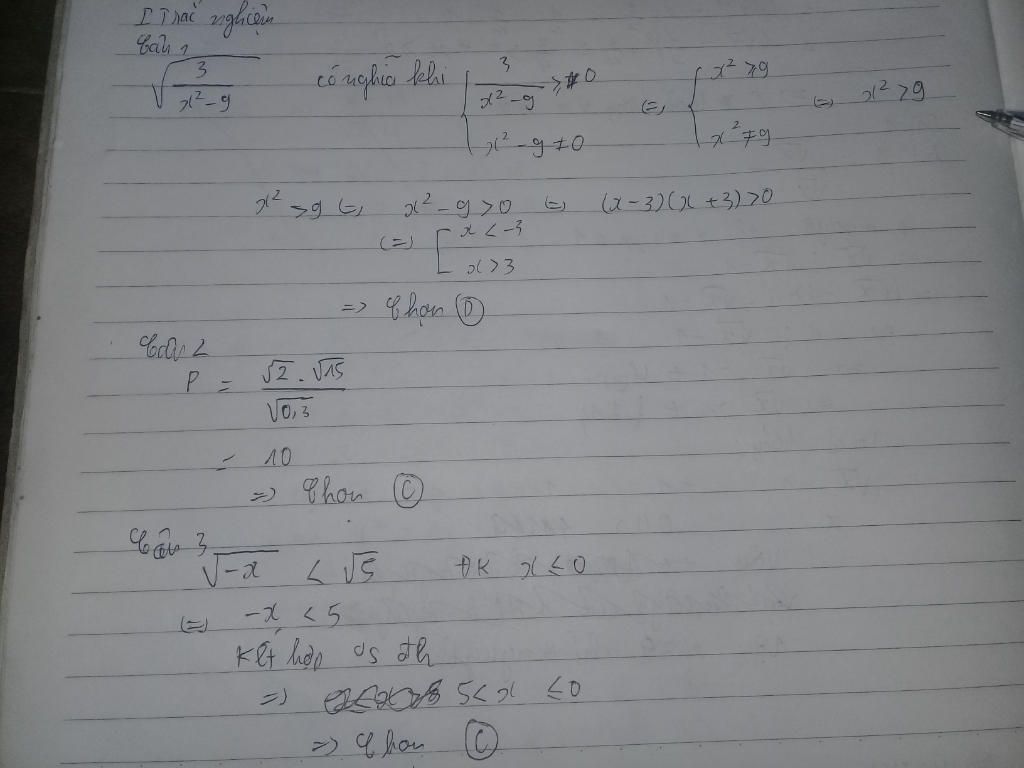 I Trắc nghiệm
Câu 1
√(3/(x² - 9)) có nghĩa khi { 3/(x² - 9) ≥ 0 ; x² - 9 ≠ 0 ⇔ { x² ≥ 9 ; x² ≠ 9 ⇔ x² > 9
x² > 9 ⇔ x² - 9 > 0 ⇔ (x - 3)(x + 3) > 0
⇔ [ x < -3 ; x > 3
=> Chọn D
Câu 2
P = (√2 . √15)/√0,3
= 10
=> Chọn C
Câu 3
√(-x) < √5 ĐK x ≤ 0
⇔ -x < 5
Kết hợp vs đk
=> 5 < x ≤ 0
=> Chọn C